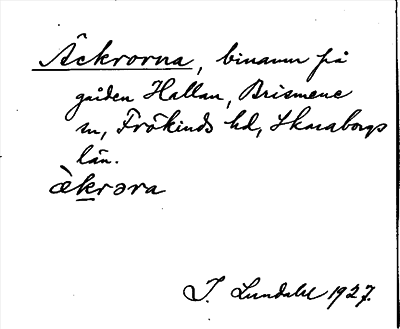 Äckrorna, binamn på
gården Hallan, Brismene
sn, Frökinds hd, Skaraborgs
län.
ὲkrəra
I. Lundahl 1927.